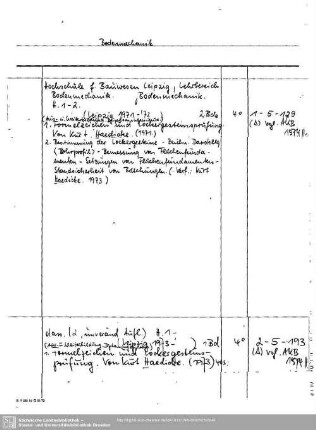 Bodenmechanik
Hochschule f. Bauwesen Leipzig, Lehrbereich
Bodenmechanik. Bodenmechanik.
H. 1-2.
(Leipzig 1971-'73 2 Bde 4° 1-5-129
1. Formelzeichen und Lockergesteinsprüfung (A) vgl. AKB
Von Kurt Haedicke. (1971) 1574/
2. Benennung der Lockergesteine - Zeichn. Darstellg
(Bohrprofil) - Bemessung von Flächenfunda-
menten - Setzungen von Flächenfundamenten -
Standsicherheit von Böschungen. (Verf.: Kurt
Haedicke. 1973)
dass. (2., unveränd. Aufl.) H. 1-
Leipzig 1973- ) 1 Bd 4° 2-5-193
1. Formelzeichen und Lockergesteins- (A) vgl. AKB
prüfung. Von Kurt Haedicke. (1973) 1574/
Sächsische Landesbibliothek -
Staats- und Universitätsbibliothek Dresden